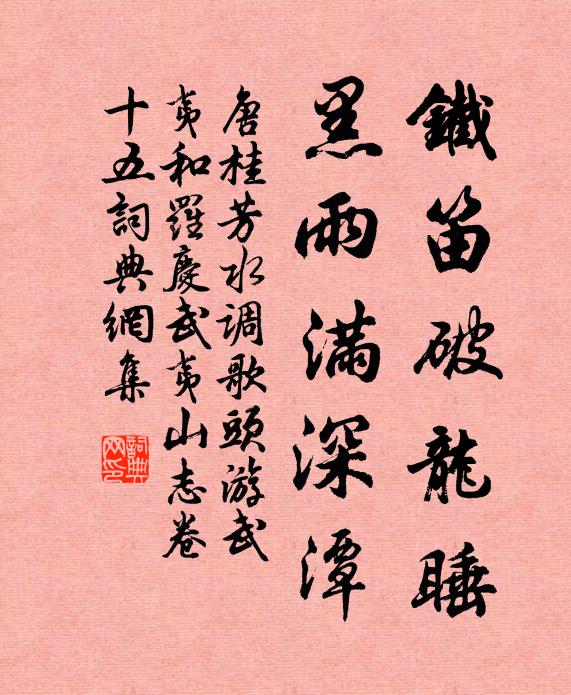 鐵笛破龍睡
黑雨滿深潭
唐桂芳水调歌頭游武
夷和羅慶武夷山志卷
十五詞典網集
詞典
网印